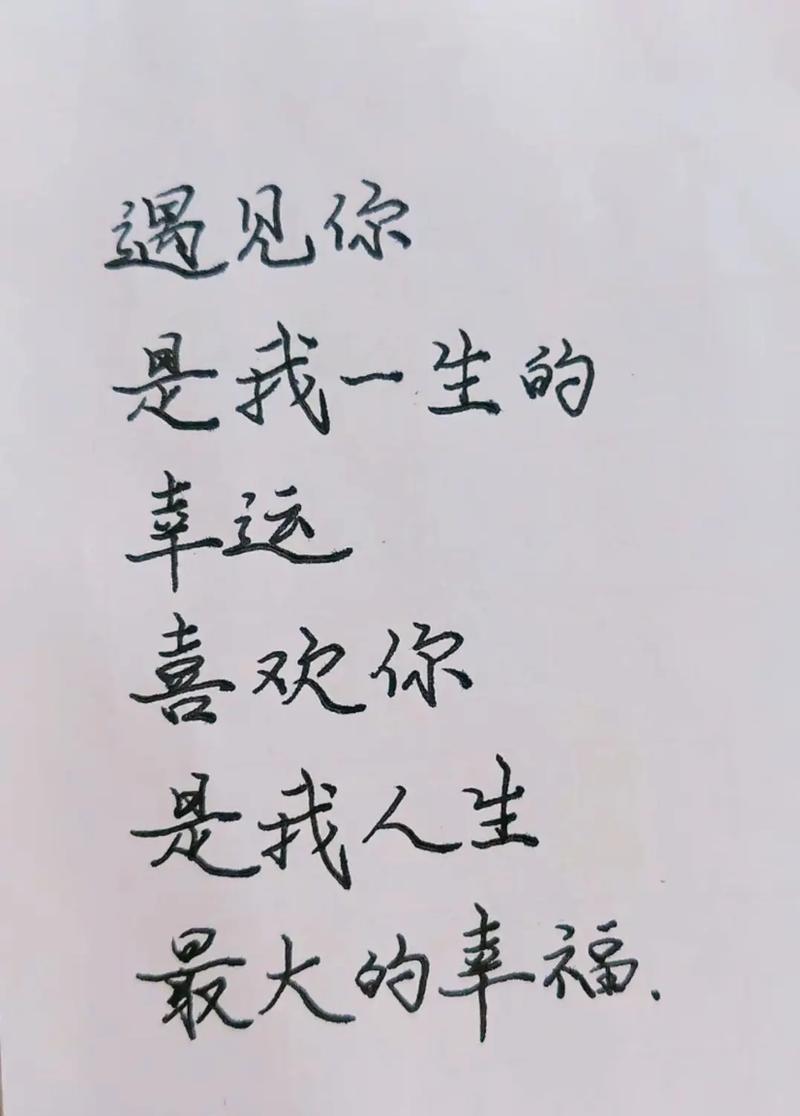 遇见你
是我一生的
幸运
喜欢你
是我人生
最大的幸福.